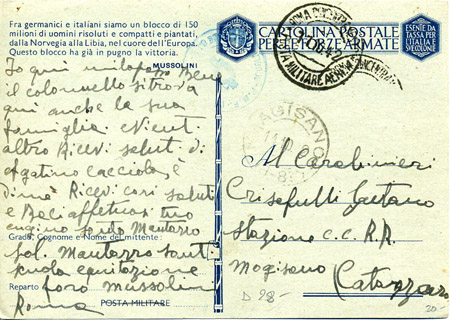 Fra germanici e italiani siamo un blocco di 150
milioni di uomini risoluti e compatti e piantati,
dalla Norvegia alla Libia, nel cuore dell'Europa.
Questo blocco ha già in pugno la vittoria.
MUSSOLINI
CARTOLINA POSTALE
PER LE FORZE ARMATE
ESENTE DA
TASSA PER
L'ITALIA E
SUE COLONIE
Io qui mi Bene
il colonnello si trova
qui anche la sua
famiglia e Nient
altro Ricevi saluti di
Agatino Cacciola, e
di me Ricevi cari saluti
e Baci affettuosi tuo
cugino Mantarro
Grado, Cognome e Nome del mittente:
Sol. Mantarro
scuola equitazione
Reparto foro Mussolini
Roma
POSTA MILITARE
Al Carabiniere
Crisafulli Gaetano
Stazione C.C. R.R.
Mogisano
Catanzaro
D 28-
30-